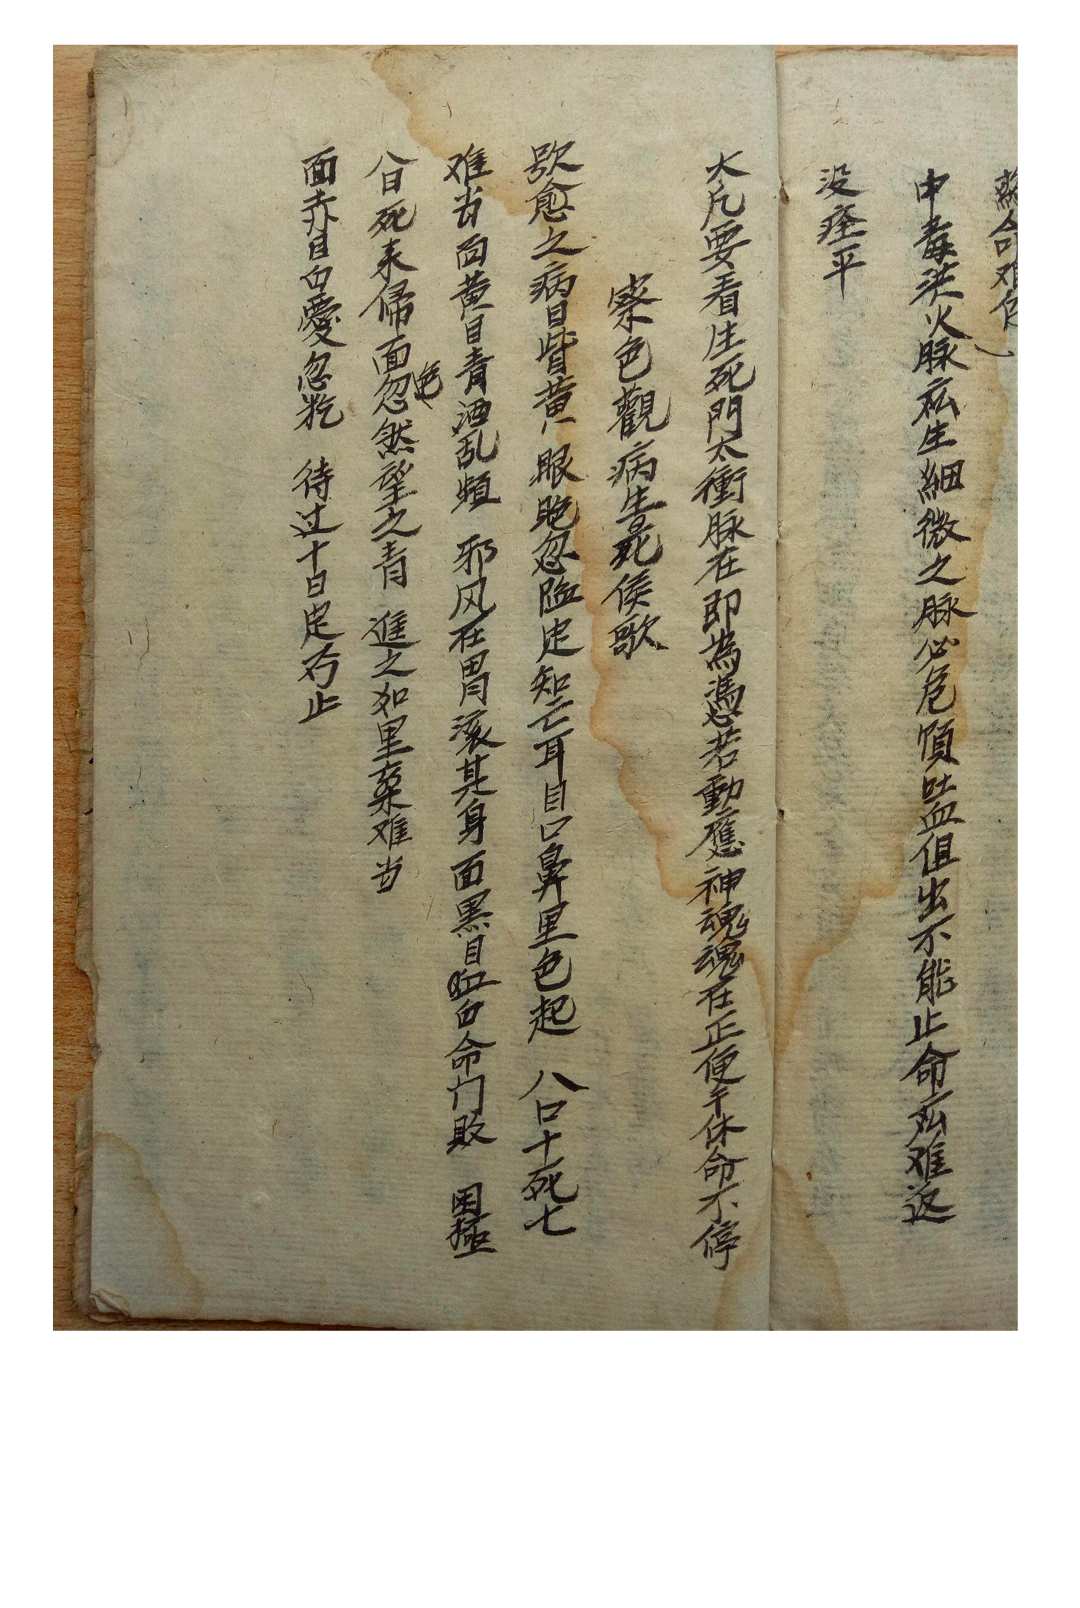 命难
中毒洪火脉 生細微之脉必危 吐血但出不能止命 难返
没 平
大凡要看生死門太衝脉在即為憑若動應神魂魂在正便干休命不停
察色觀病生死侯歌
欵愈之病目眥黄眼胞忽陷定知亡耳目口鼻里色起 八口十死七
难当面黄目青酒乱頻 邪风在胃滚其身面黒目 白命门敗 困極
八日死来 面色忽然望之青 進之如里 难当
面赤目白憂忽 待过十日定 止